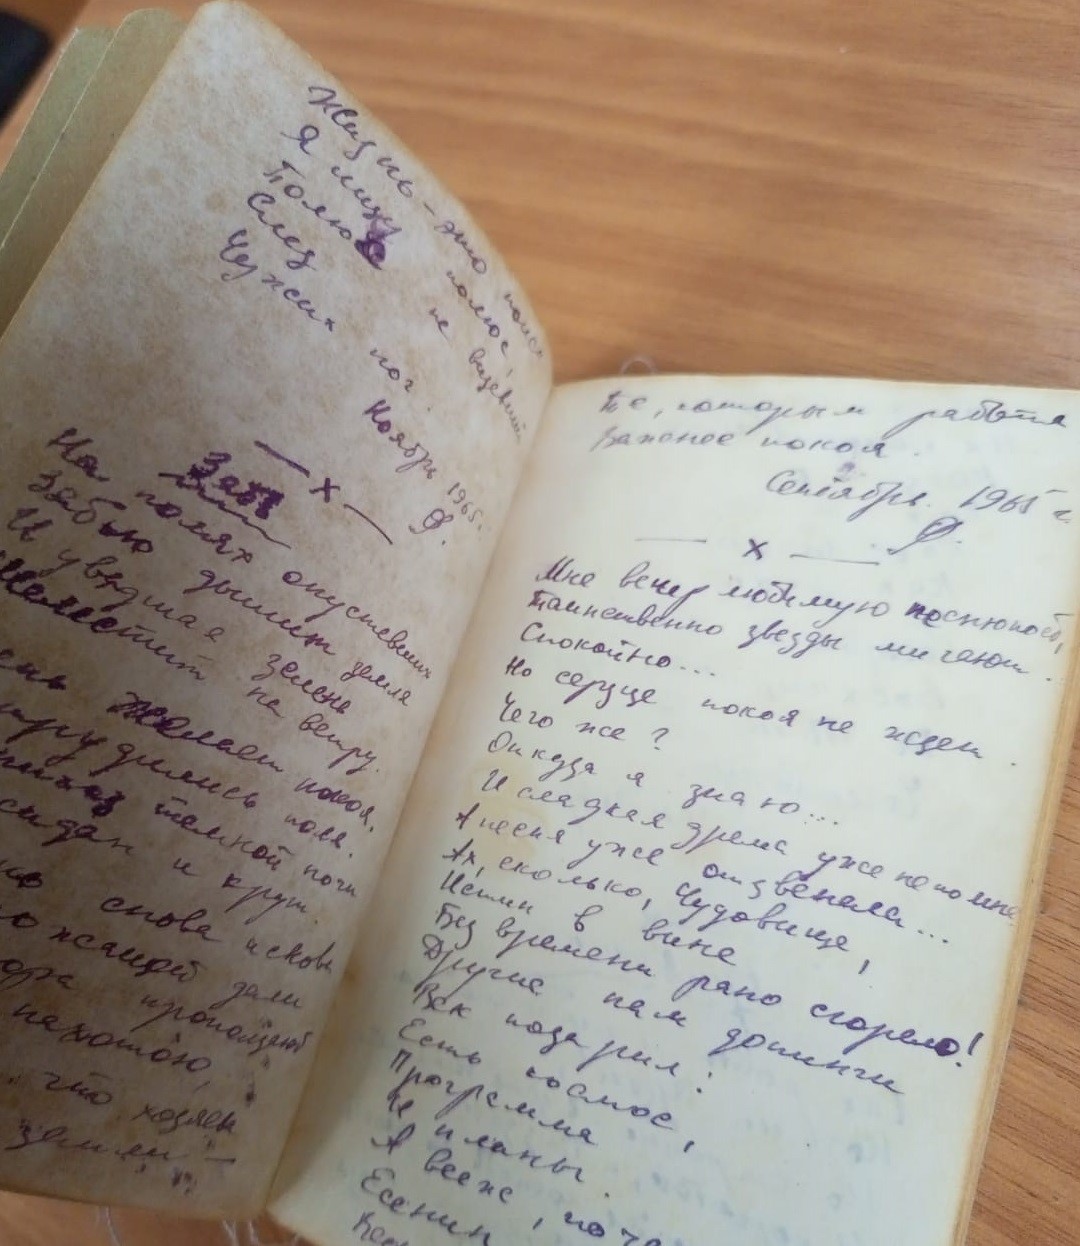 Жизнь – это поиск
Я ищу полюс,
Полюс не видевший
След
Чужих ног.
Ноябрь 1965г.
Ф.
— x —
На полях опустевших
Забыю дышит земля
И увядшая зелень
Шелестит на ветру.
желает покоя,
трудились поля.
темной ночи
и круг.
снова и снова
жаждой дали
пахотою,
что хозяев
земли –
Те, которым работа
Важнее покоя.
Сентябрь. 1965 г.
Ф.
— x —
Мне вечер любимую
Таинственно звезды мигают.
Спокойно...
Но сердце покоя не ждет.
Чего же?
Откуда я знаю...
И сладкая дрема уже не по мне
А песня уже отзвенела...
Ах, сколько, Чудовище,
Истин в вине
Без времени рано сгорело!
Другие нам деньги
Век подарил:
Есть космос,
Программа
И планы.
А всеж,
Есенин